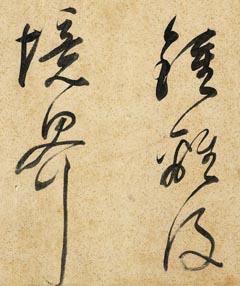 鍾離後
境界